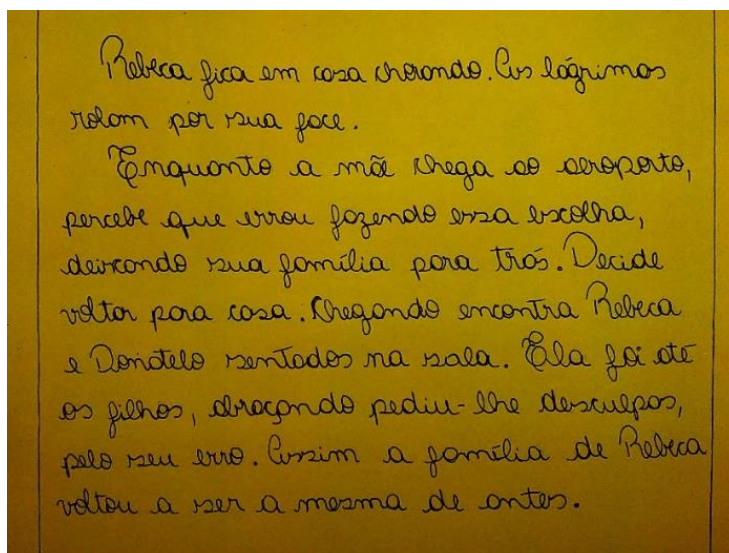 Rebeca fica em casa chorando. As lágrimas
rolam por sua face.
Enquanto a mãe chega ao aeroporto,
percebe que errou fazendo essa escolha,
deixando sua família para trás. Decide
voltar para casa. Chegando encontra Rebeca
e Donatelo sentados na sala. Ela foi até
os filhos, abraçando pediu-lhe desculpas,
pelo seu erro. Assim a família de Rebeca
voltou a ser a mesma de antes.